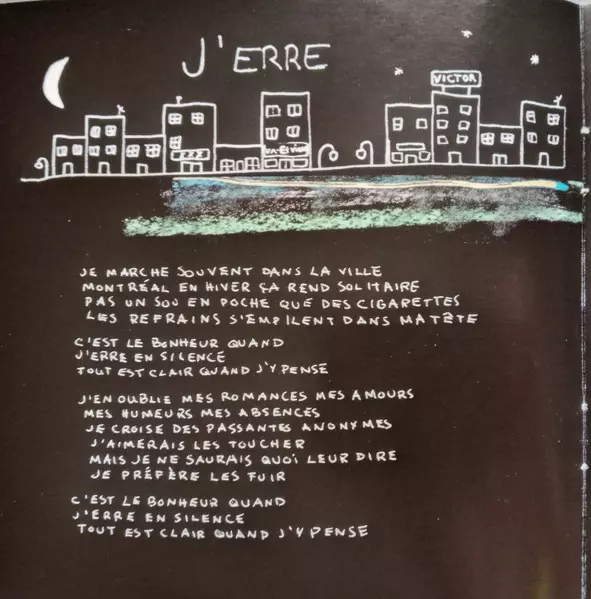 J'ERRE
VICTOR
JE MARCHE SOUVENT DANS LA VILLE
MONTRÉAL EN HIVER ÇA REND SOLITAIRE
PAS UN SOU EN POCHE QUE DES CIGARETTES
LES REFRAINS S'EMPILENT DANS MA TÊTE
C'EST LE BONHEUR QUAND
J'ERRE EN SILENCE
TOUT EST CLAIR QUAND J'Y PENSE
J'EN OUBLIE MES ROMANCES MES AMOURS
MES HUMEURS MES ABSENCES
JE CROISE DES PASSANTES ANONYMES
J'AIMERAIS LES TOUCHER
MAIS JE NE SAURAIS QUOI LEUR DIRE
JE PRÉFÈRE LES FUIR
C'EST LE BONHEUR QUAND
J'ERRE EN SILENCE
TOUT EST CLAIR QUAND J'Y PENSE